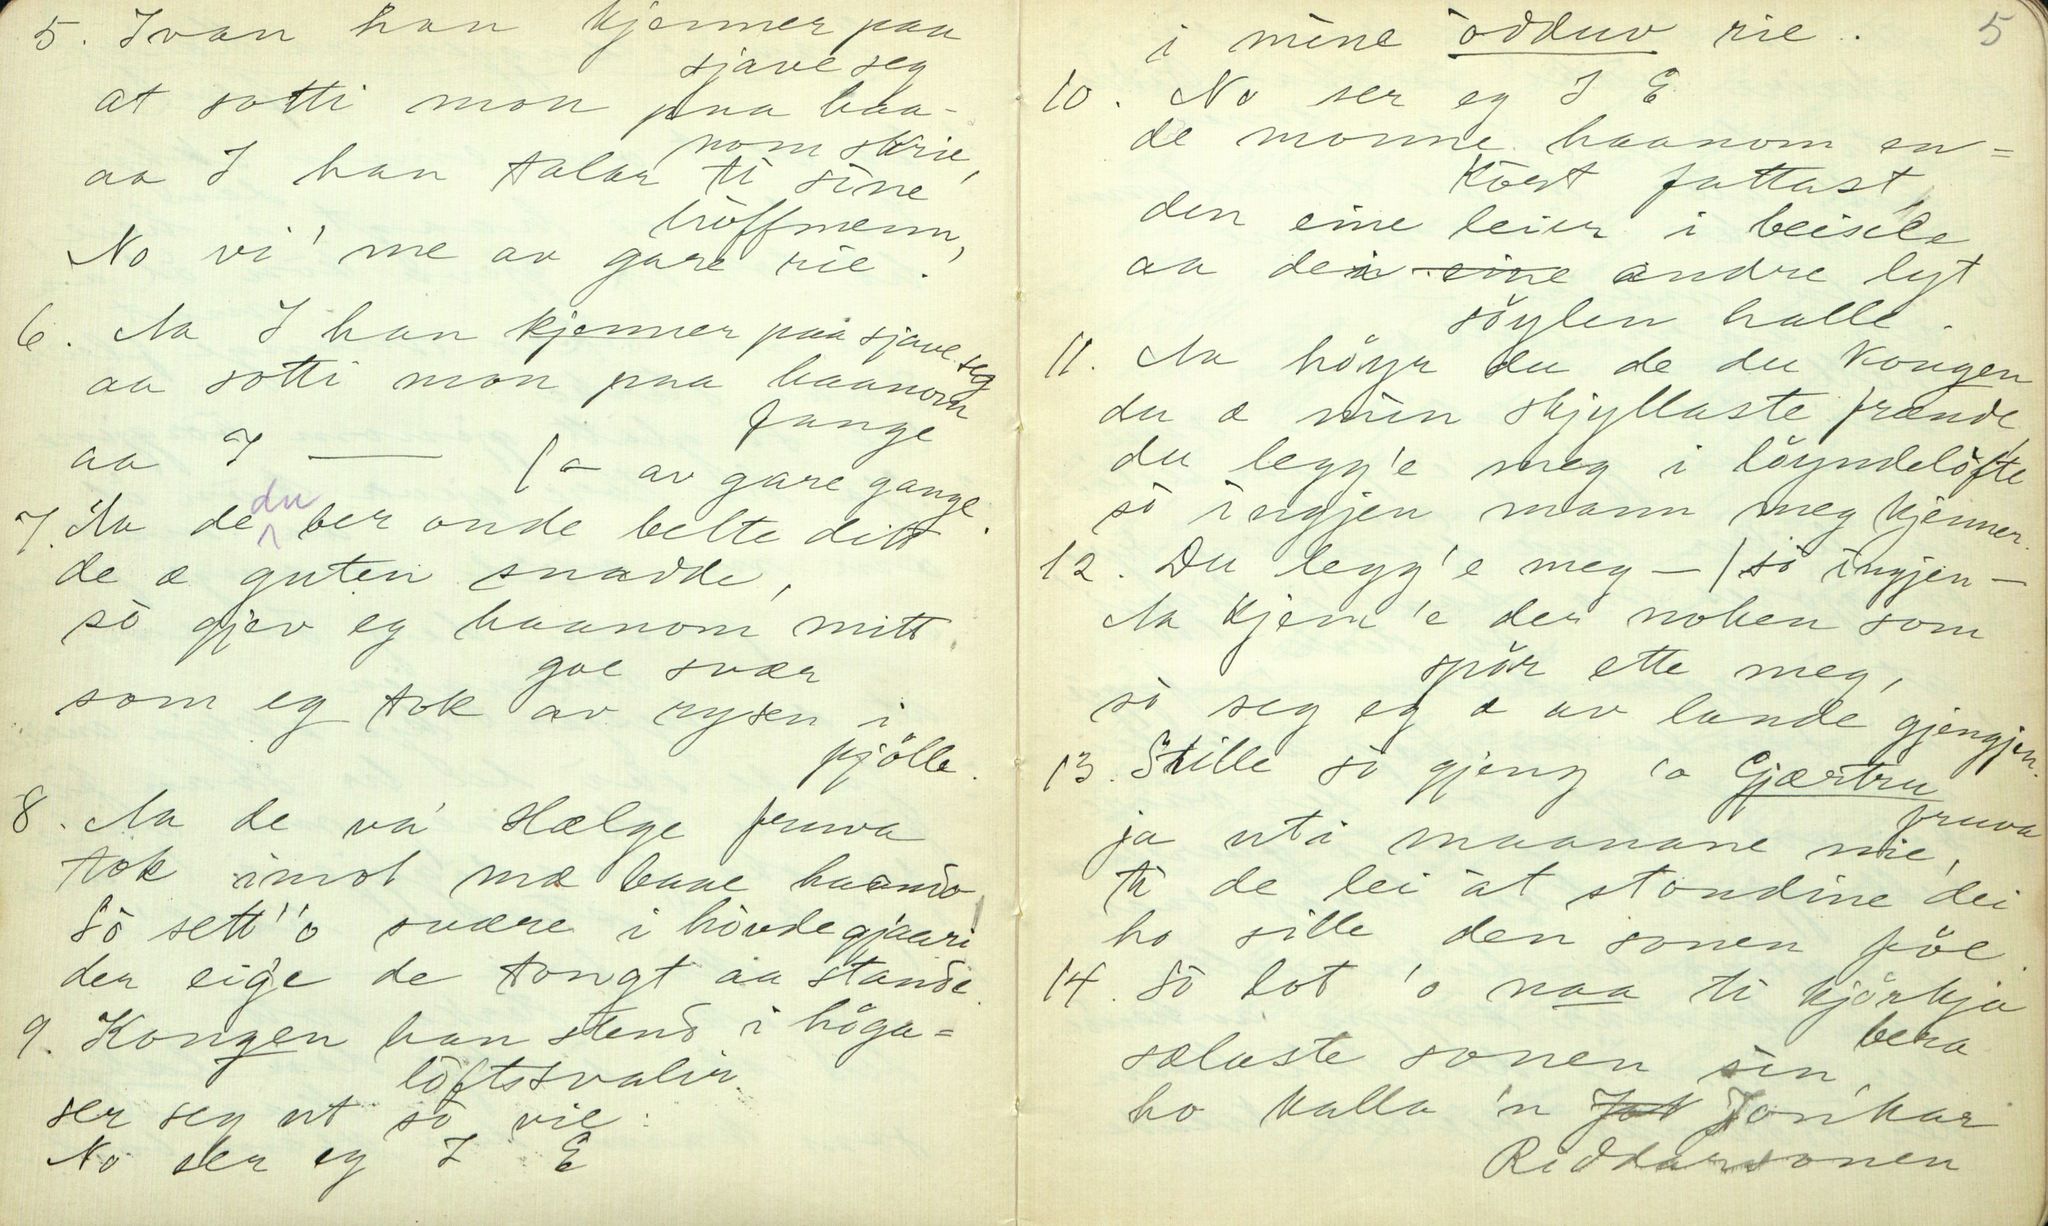 5. Ivan han kjenner paa
sjave seg
at sotti mon paa haa-
nom skrie,
aa I han talar ti sine
höffmenn,
No vi' me av gare rie.'
6. Aa I han kjenner paa sjave seg
aa sotti mon paa haanom
fange
aa I — / a – av gare gange.
7. Aa de du ber onde belte ditt
de æ guten snadde,
so gjev eg haanom mitt
goe svær
som eg tok av rysen i
fjölle.
8. Aa de va' Hælge fruva
tok imot mæ baae hando
So sett' 'o svære i hövdegjaari
der eig'e de tongt aa stande.
9. Kongen han stend i höga=
löftssvalir
ser seg ut so vie:
No ser eg I E
5
i mine odduv rie.
10. No ser eg I E
de monne haanom en=
kört fattast,
den eine leier i beisele
aa dein eine andre lyt
söylen halle.
11. Aa höyr du de du Kongen
du æ min skjyllaste frænde
du legg'e meg i löyndelöfte
so ingjen mann meg kjenner.
12. Du legg'e meg – / so ingjen –
Aa kjem'e der noken som
spör ette meg,
so seg eg æ av lande gjengjen.
13. Stille so gjeng 'o Gjærtru
fruva
ja uti maanane nie,
ti de lei at stondine dei
ho sille den sonen föe.
14. So lot 'o naa ti kjörkja
bera
sælaste sonen sin,
ho kalla 'n Jot Jon'kar
Riddarsonen